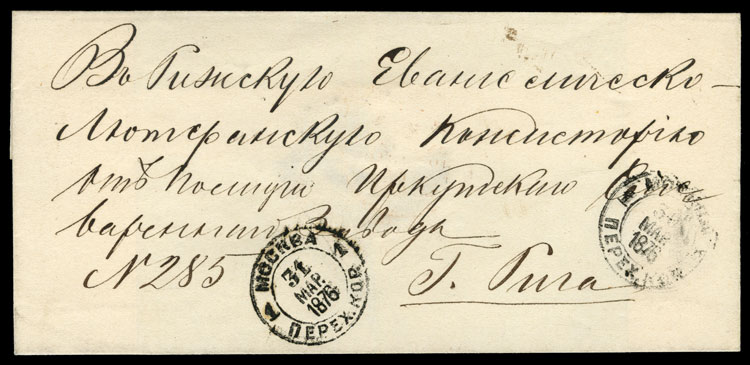 Въ Рижскую Евангелическо-
Лютеранскую Консисторію
отъ Пастора Иркутскаго
варенный Завода
N 285
Г. Рига
МОСКВА
31
МАР.
1876
ПЕРЕХ.
МАР.
1876
ПЕРЕХ.